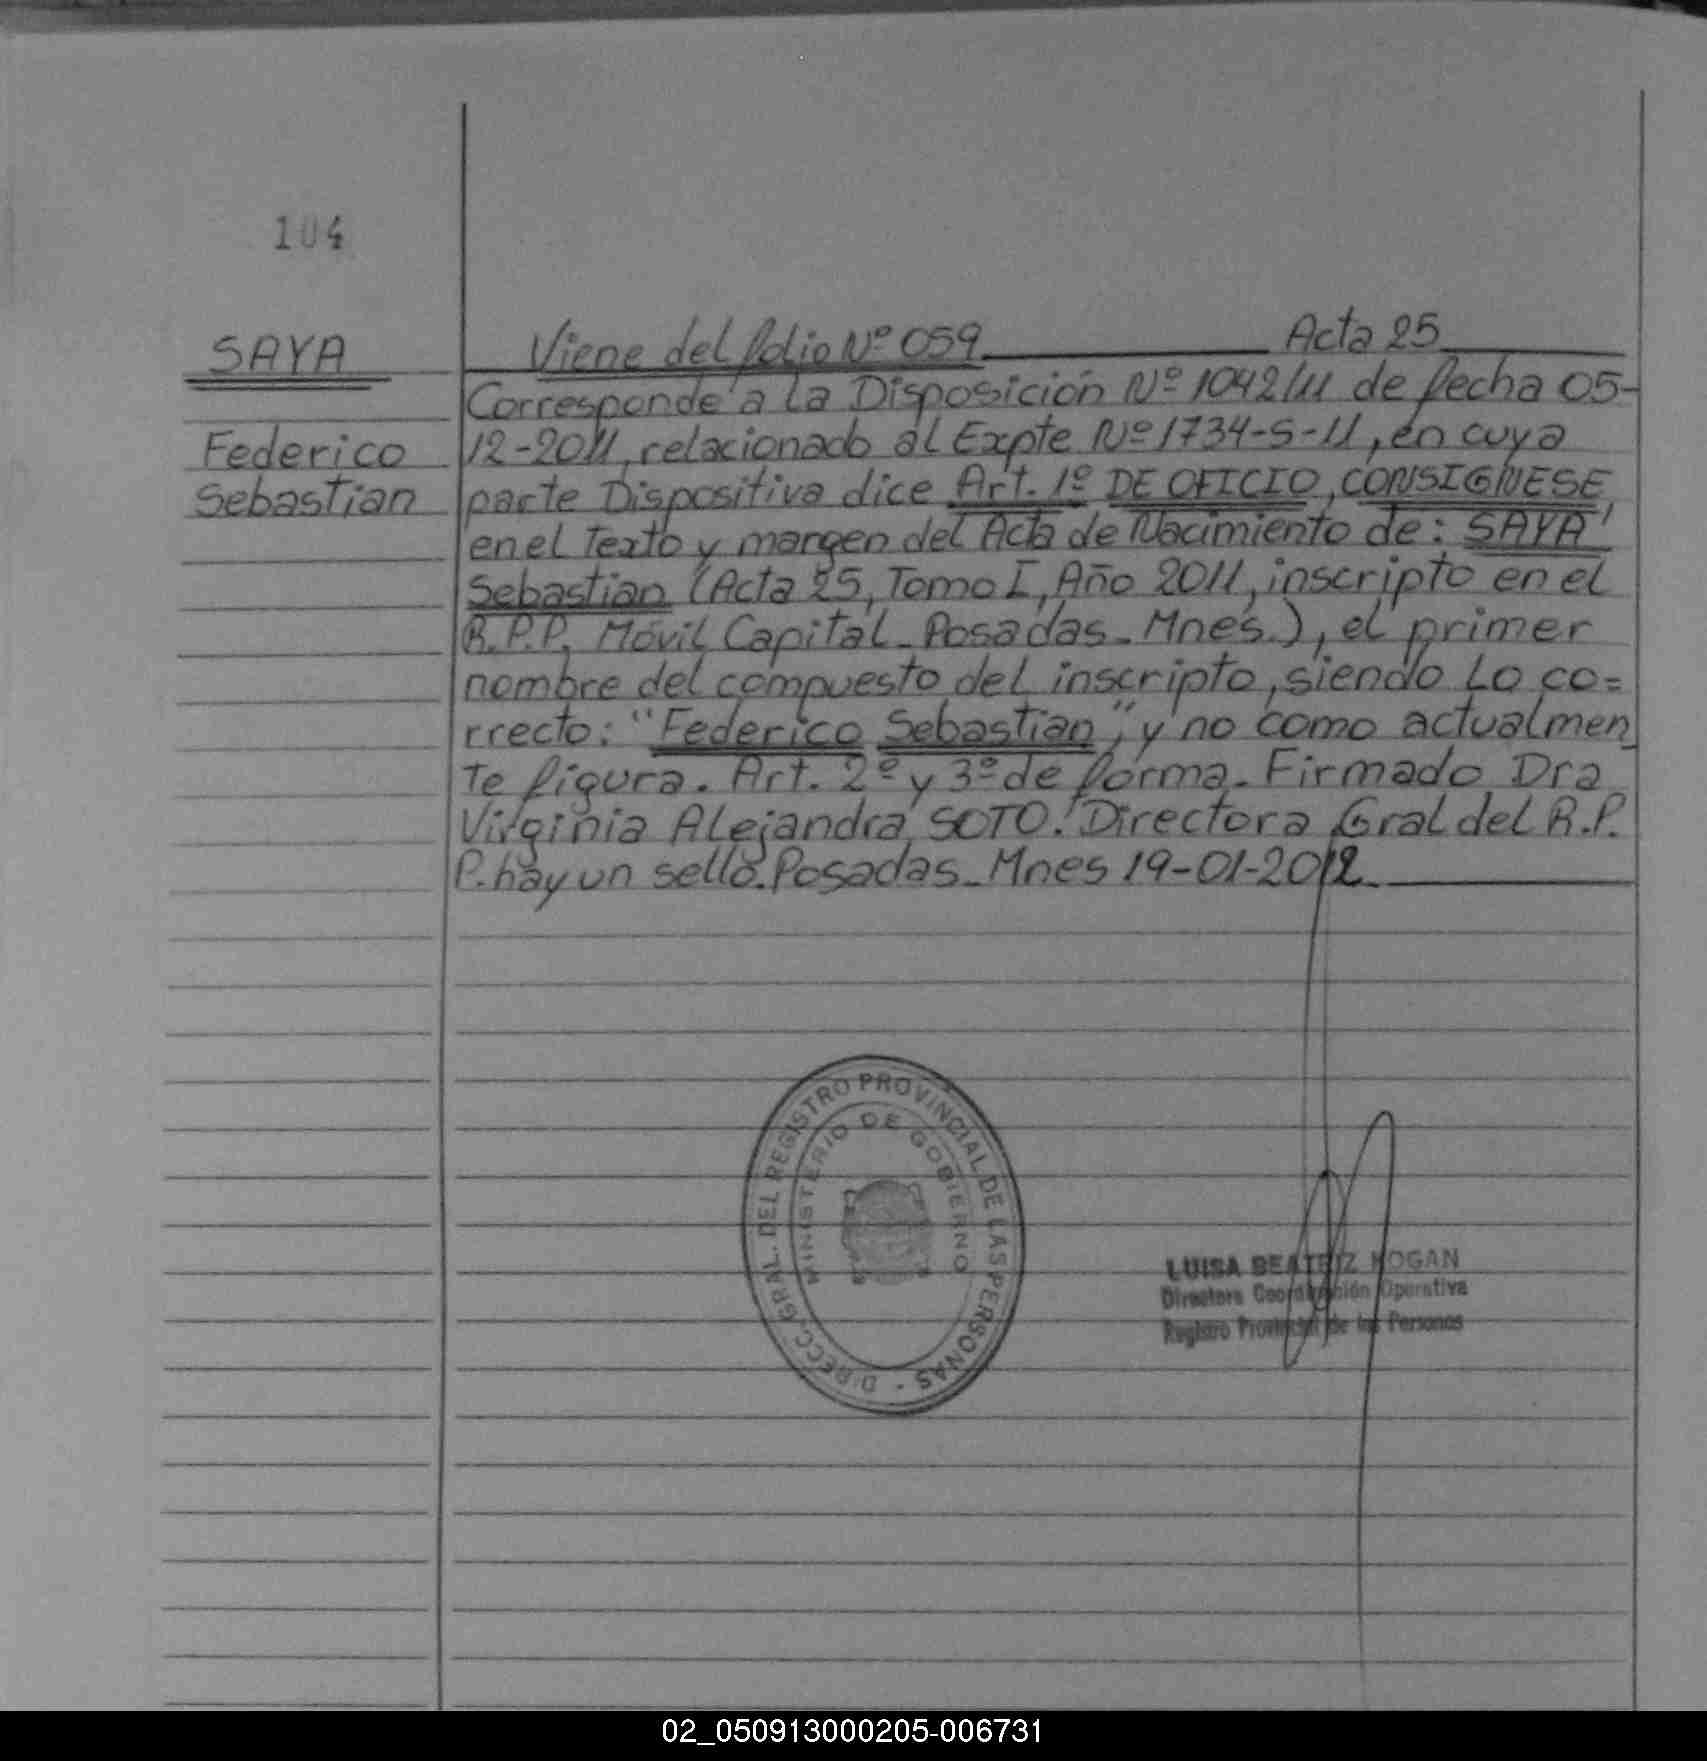 104
SAYA
Federico
Sebastian
Viene del folio Nº 059 Acta 25
Corresponde a la Disposición Nº 1042/11 de fecha 05-
12-2011, relacionado al Expte Nº 1734-S-11, en cuya
parte Dispositiva dice Art. 1º DE OFICIO, CONSIGNESE,
en el Texto y margen del Acta de Nacimiento de: SAYA
Sebastian (Acta 25, Tomo I, Año 2011, inscripto en el
R.P.P. Móvil Capital_Posadas_Mnes.), el primer
nombre del compuesto del inscripto, siendo Lo co=
rrecto: "Federico Sebastian", y no como actualmen
te figura. Art. 2º y 3º de forma. Firmado Dra
Virginia Alejandra SOTO. Directora Gral del R.P.
P. hay un sello. Posadas_Mnes 19-01-2012.
DIRECC. GRAL. DEL REGISTRO PROVINCIAL DE LAS PERSONAS -
MINISTERIO DE GOBIERNO
LUISA BEATRIZ HOGAN
Directora Coordinación Operativa
Registro Provincial de las Personas
02_050913000205-006731